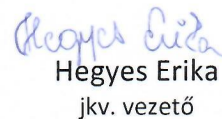 Hegyes Erika
Hegyes Erika
jkv. vezető